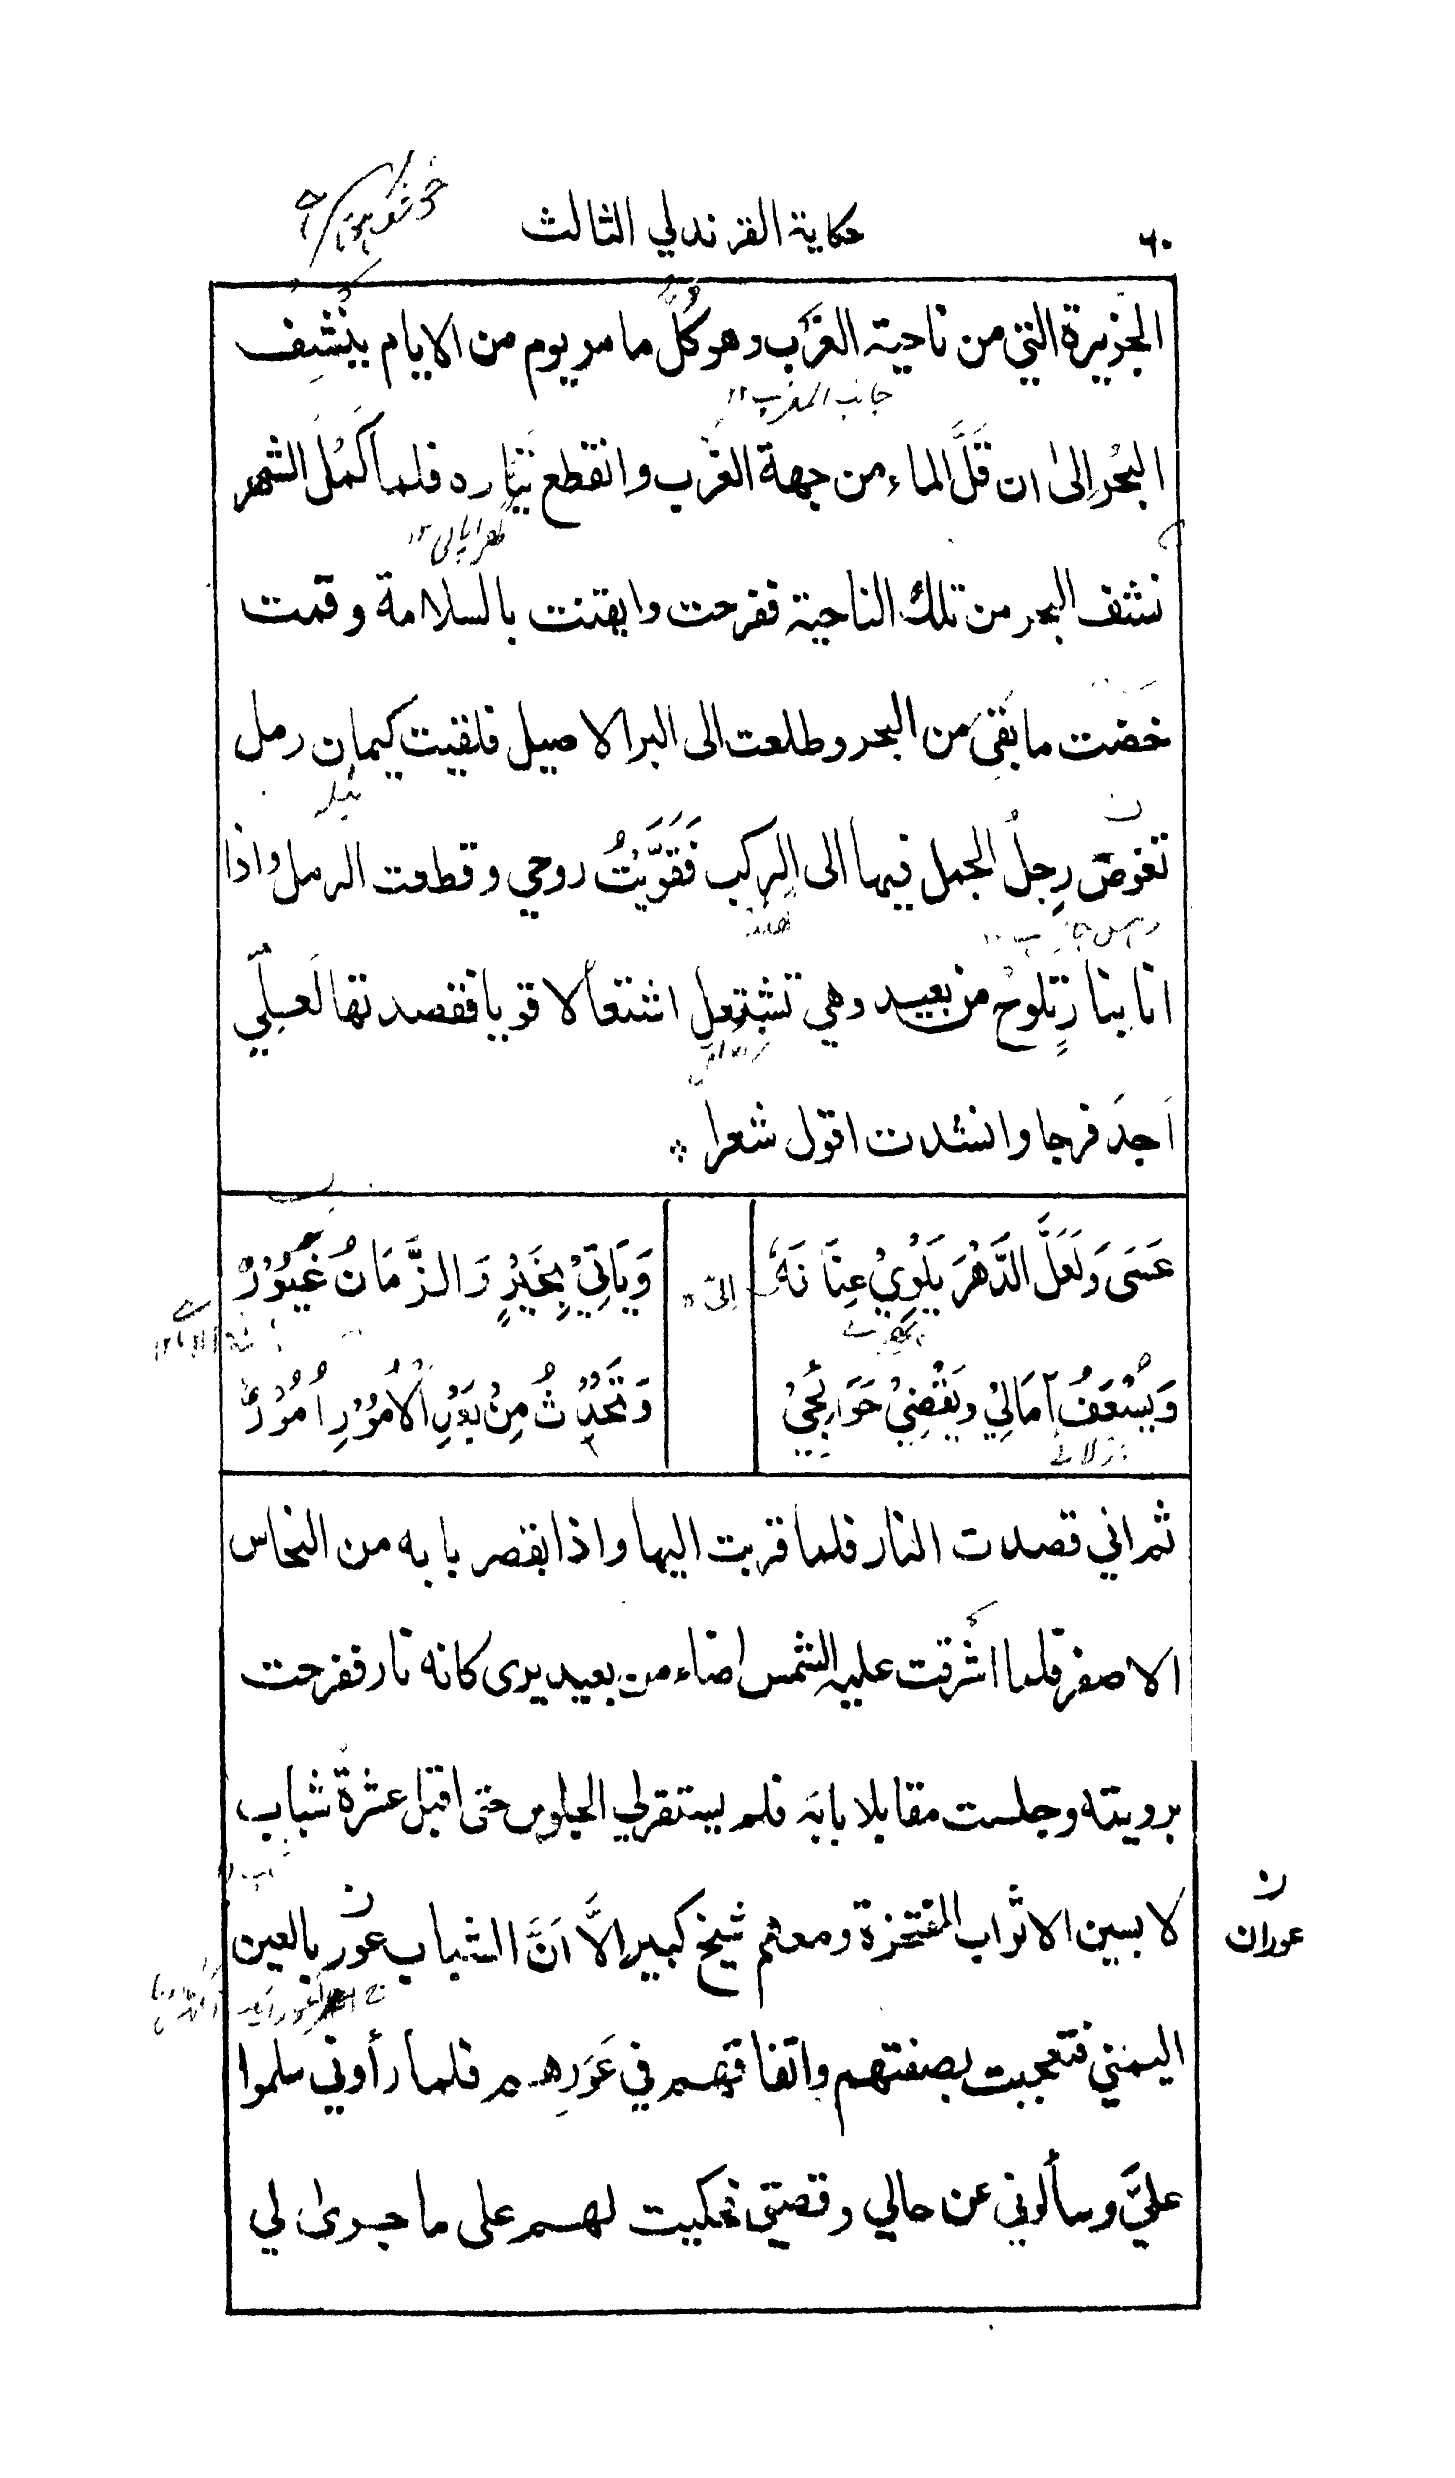 ٦٠
حكاية القرندلي الثالث
الجزيرة التي من ناحية الغَرْب وهو كُلَّ ما مر يوم من الايام يَنْشِف
البحْر اِلىٰ ان قَلَّ الماء من جهة الغَرْب وانقطع تَيَّاره فلما كَمُلَ الشهر
نشف البحر من تلك الناحية ففرحت وايقنت بالسلامة وقمت
خضت ما بَقيَ من البحر وطلعت الى البر الاصيل فلقيت كيمان رمل
تغوص رِجلُ الجمل فيها الى الركب فَقَوَّيْتُ روحي وقطعت الرمل واذا
انا بنارٍ تلوح من بعيد وهي تشتعل اشتعالا قويا فقصدتها لَعلّي
اَجدَ فرجا وانشدت اقول شعرا
عَسَى وَلَعَلَّ الدَّهْرَ يَلْوِيْ عِنَانَهُ
وَيَأتِيْ بِخَيْرٍ وَالزَّمَانُ غَيُوْرُ
وَيُسْعَفُ آمَالِيْ وَيَقْضِيْ حَوَائِجِيْ
وَتَحْدُثُ مِنْ بَعْدِ الْاُمُوْرِ اُمُوْرُ
ثم اني قصدت النار فلما قربت اليها واذا بقصر بابه من النحاس
الاصفر فلما اشرقت عليه الشمس اضاء من بعيد يرى كانه نار ففرحت
برويته وجلست مقابلا بابَه فلم يستقر لي الجلوس حتى اقبل عشرة شباب
لابسين الاثواب المفتخرة ومعهم شيخ كبير الاَّ اَنَّ الشباب عور بالعين
ن
عوران
اليمنى فتعجبت بصفتهم واتفاقهم في عَوَرِهم فلما رأوني سلموا
عليَّ وسألوني عن حالي وقصتي فحكيت لهم على ما جرىٰ لي